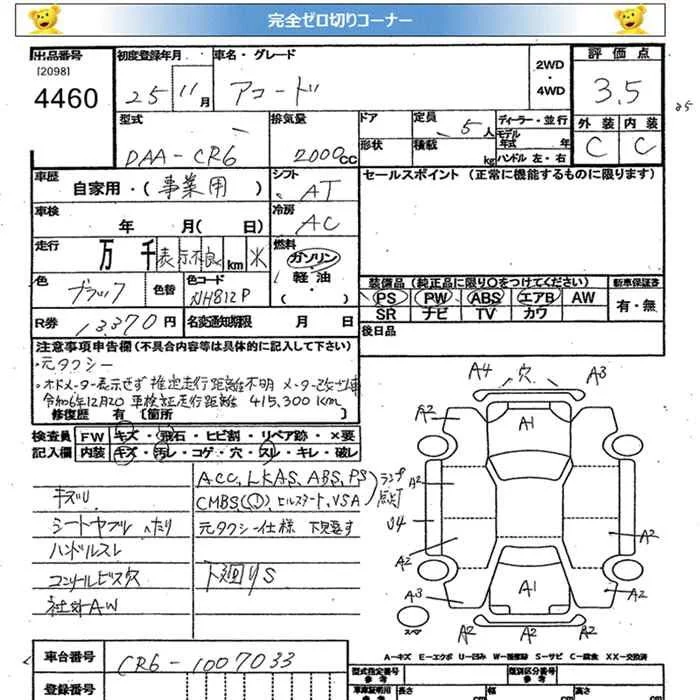 完全ゼロ切りコーナー
出品番号
[2098]
4460
初度登録年月
25 11月
車名・グレード
アコード
2WD
・
4WD
評価点
3.5
型式
DAA-CR6
排気量
2000cc
ドア
形状
定員
5人
積載
kg
ディーラー・並行
モデル
年式 年
ハンドル 左・右
外装 内装
C C
車歴
自家用・(事業用)
シフト
AT
セールスポイント (正常に機能するものに限ります)
車検
年 月( 日)
冷房
AC
走行
万 千 表示不良 km 米
燃料
ガソリン
軽油・
( )
色
ブラック
色替
色コード
NH812P
装備品(純正品に限り〇をつけてください)
PS PW ABS エアB AW
SR ナビ TV カワ
新車保証書
有・無
R券
13,370円
名変通知期限 月 日
後日品
注意事項申告欄(不具合内容等は具体的に記入して下さい)
・元タクシー
・オドメーター表示せず 推定走行距離不明 メーター改ざん車
令和6年12月20 車検証走行距離 415,300Km
修復歴 有 [箇所 ]
検査員 FW キズ・飛石・ヒビ割・リペア跡・×要
記入欄 内装 キズ・汚レ・コゲ・穴・スレ・キレ・破レ
キズU
シートヤブレ ヘタリ
ハンドルスレ
コンソールビス穴
社外AW
ACC, LKAS, ABS, PS
CMBS, (!), ヒルスタート, VSA
ランプ点灯
元タクシー仕様
下廻りS
A4 穴 A3
A2 A1 A2
A2
U4
A2 A2
A3 A1 A2
スペア
A2 A2 A2
A-キズ E-エクボ U-凹み W-補修跡 S-サビ C-腐食 XX-交換済
車台番号
CR6-1007033
登録番号
型式指定番号
参考
類別区分番号
参考
車庫証明用
参考
長さ
幅
高さ